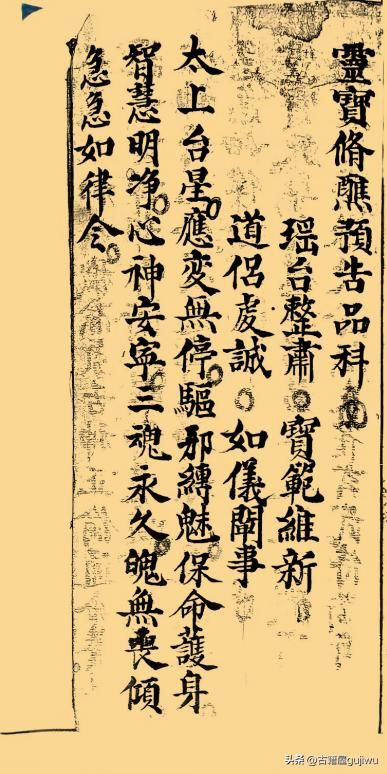 靈寶脩醮預告品科
瑶台整肅 寶範維新
道侣虔誠 如儀闡事
太上台星應变無停驅邪縛魅保命護身
智慧明净心神安寧三魂永久魄無喪傾
急急如律令
头条 @古籍屋gujiwu